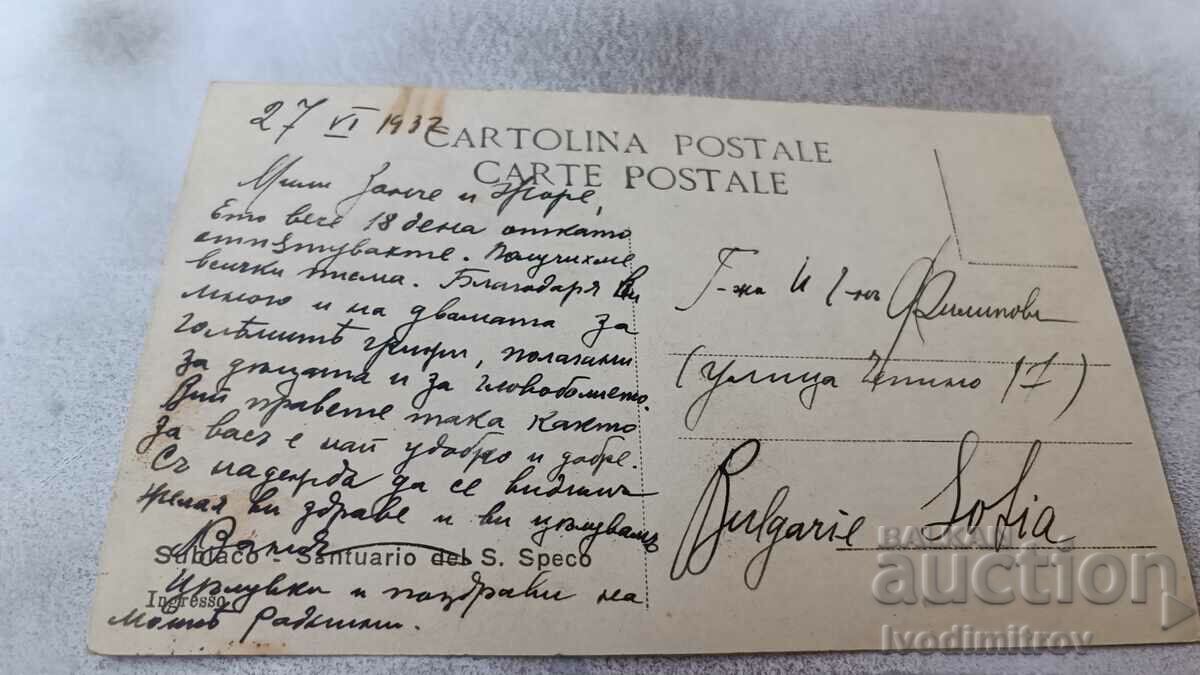 27 VI 1937
CARTOLINA POSTALE
CARTE POSTALE
Мили и Жоре,
Ето вече 18 дена откато
отпътувахте. Получихме
всички писма. Благодаря ви
много и на двамата за
голѣмитѣ грижи, полагани
за децата и за главоболието.
Вий правете така както
за васъ е най удобно и добре.
Съ надежда да се видимъ
желая ви здраве и ви цѣлувамъ
Subiaco - Santuario del S. Speco
Ingresso
Цѣлувки и поздрави на
моитѣ
Г-жа и Г-нъ Филипови
(улица Чепино 11)
Bulgarie Sofia
БАЛКАН
auction
Ivodimitrov